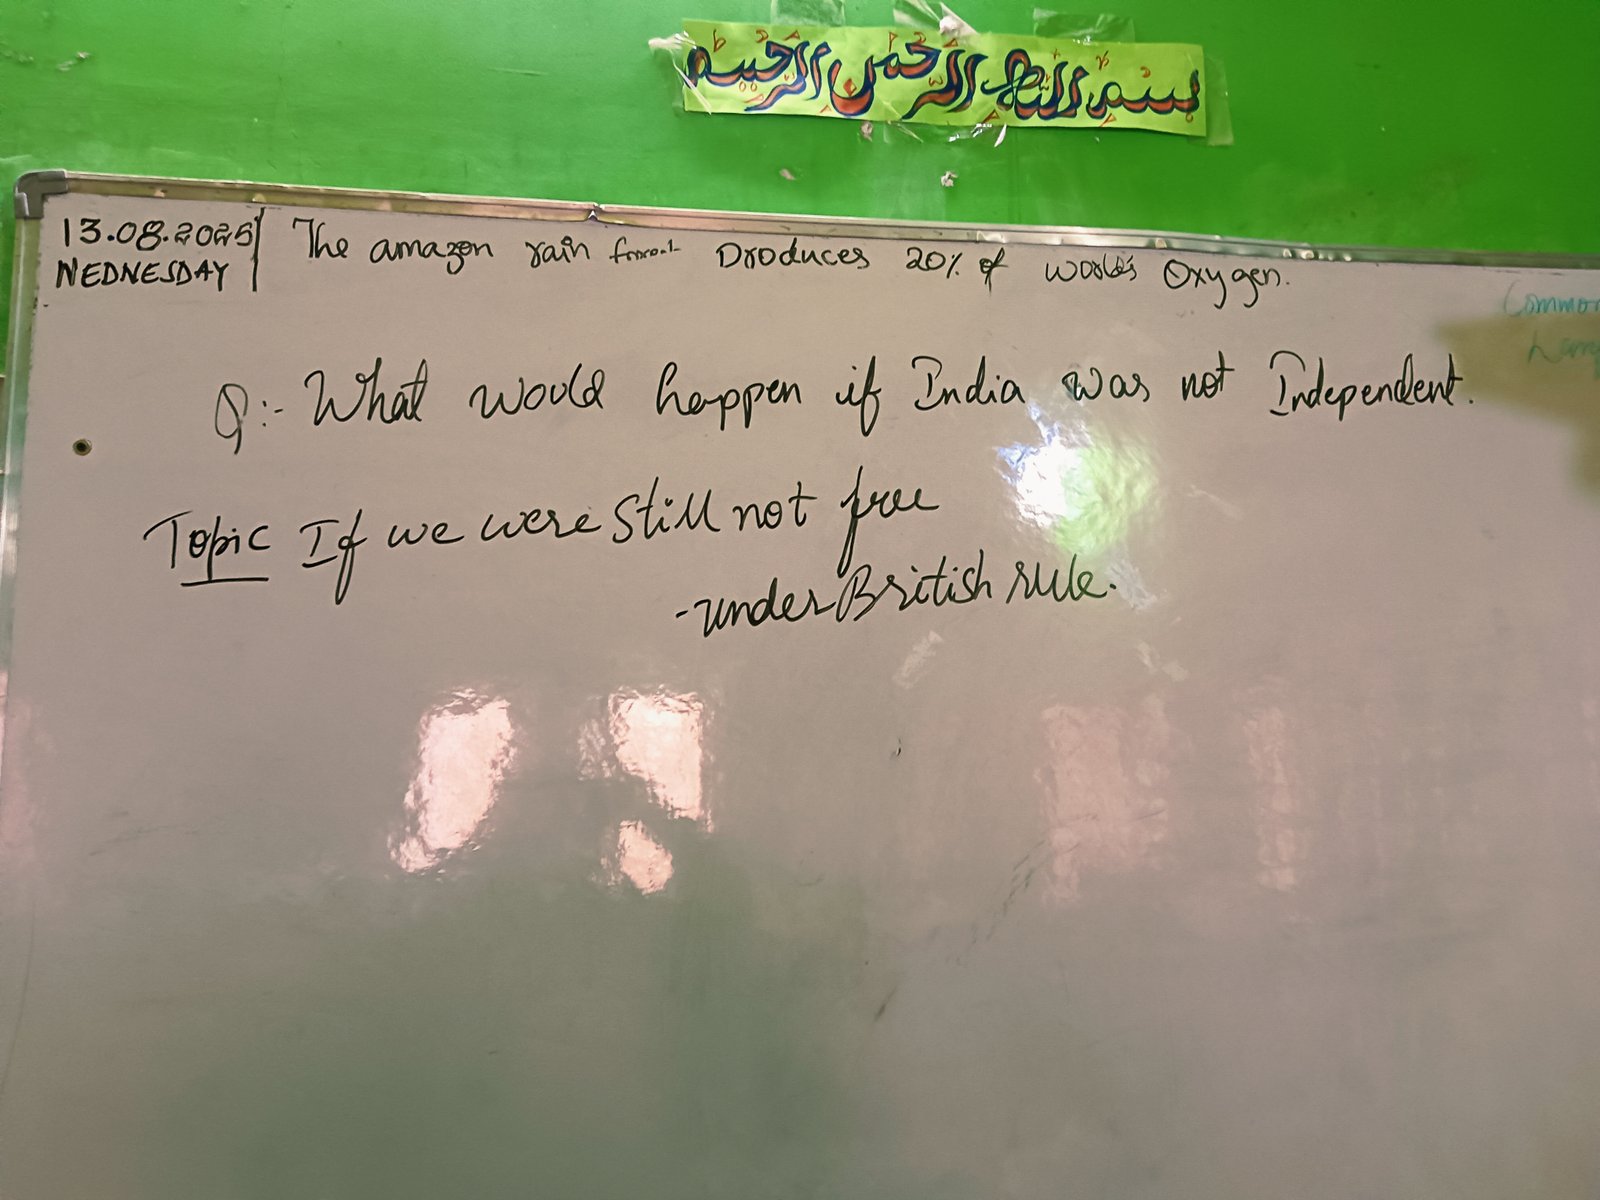 بسم الله الرحمن الرحيم
13.08.2025
WEDNESDAY
The amazon rain produces 20% of world's Oxygen.
Common
Q:- What would happen if India was not Independent.
Topic If we were still not free
-under British rule.